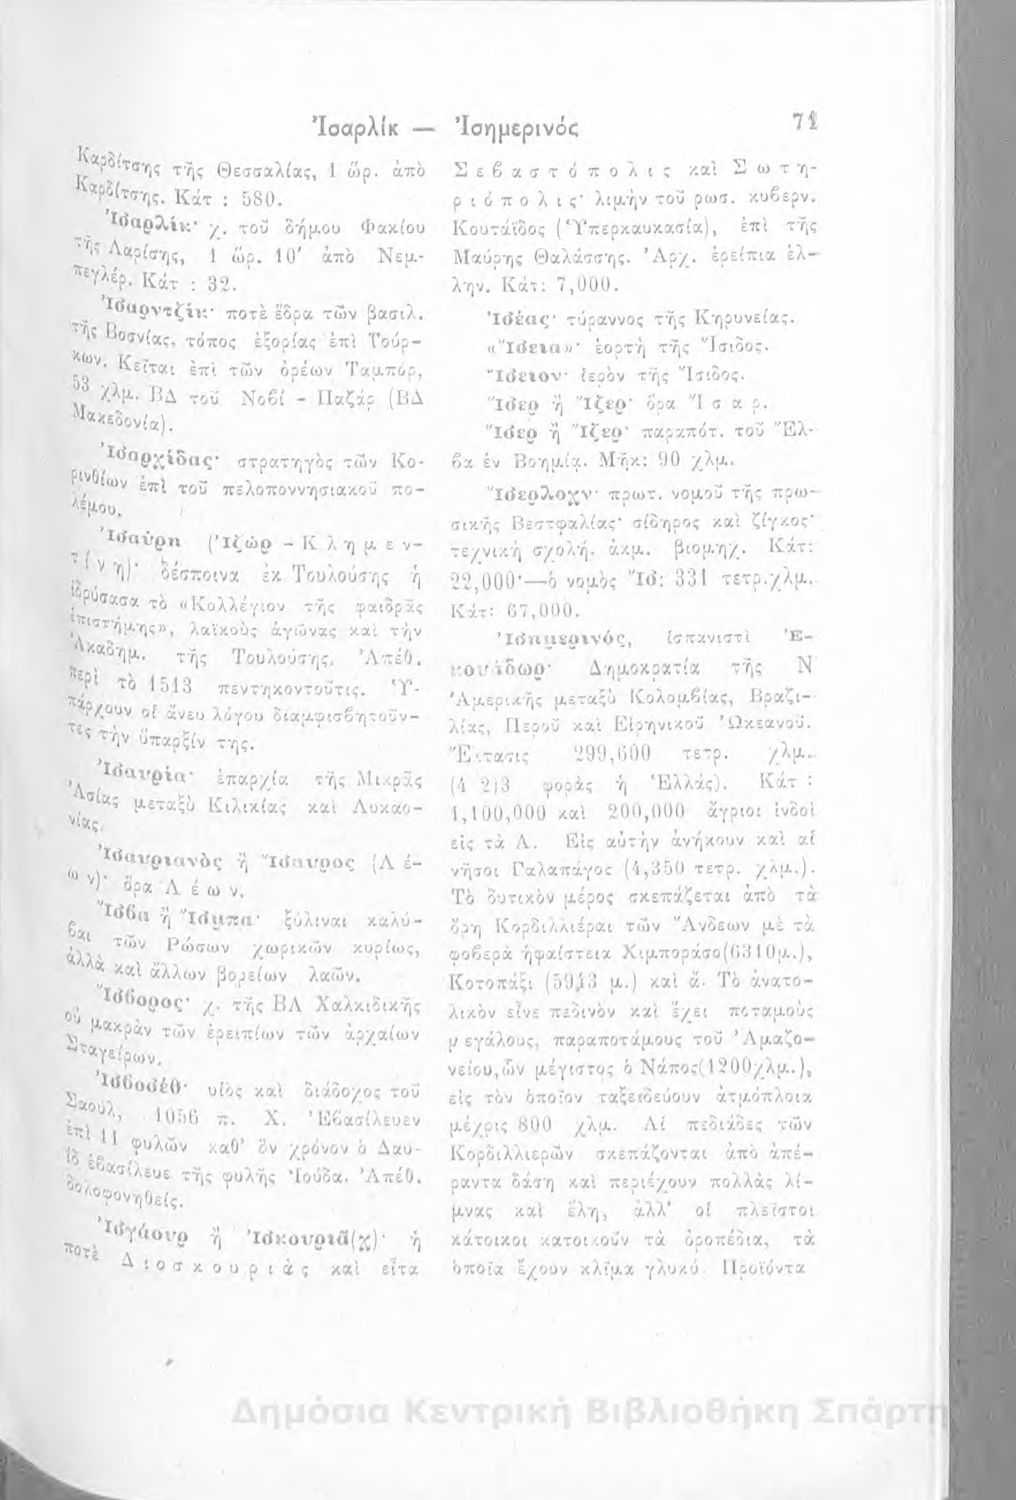 Ἰσαρλίκ — Ἰσημερινός 71
Καρδίτσης τῆς Θεσσαλίας, 1 ὥρ. ἀπὸ
Καρδίτσης. Κάτ : 580.
Ἰσαρλίκ· χ. τοῦ δήμου Φακίου
τῆς Λαρίσης, 1 ὥρ. 10′ ἀπὸ Νεμ-
πεγλέρ. Κάτ : 32.
Ἰσαρντζίκ· ποτὲ ἕδρα τῶν βασιλ.
τῆς Βοσνίας, τόπος ἐξορίας ἐπὶ Τούρ-
κων. Κεῖται ἐπὶ τῶν ὀρέων Ταμπόρ,
53 χλμ. ΒΔ τοῦ Νοβί - Παζάρ (ΒΔ
Μακεδονία).
Ἰσαρχίδας· στρατηγὸς τῶν Κο-
ρινθίων ἐπὶ τοῦ πελοποννησιακοῦ πο-
λέμου.
Ἰσαύρη (Ἰζώρ - Κλημεν-
τίνη)· δέσποινα ἐκ Τουλούσης ἡ
ἱδρύσασα τὸ «Κολλέγιον τῆς φαιδρᾶς
ἐπιστήμης», λαϊκοὺς ἀγῶνας καὶ τὴν
Ἀκαδημ. τῆς Τουλούσης. Ἀπέθ.
περὶ τὸ 1513 πεντηκοντοῦτις. Ὑ-
πάρχουν οἱ ἄνευ λόγου διαμφισβητοῦν-
τες τὴν ὕπαρξίν της.
Ἰσαυρία· ἐπαρχία τῆς Μικρᾶς
Ἀσίας μεταξὺ Κιλικίας καὶ Λυκαο-
νίας.
Ἰσαυριανὸς ἢ Ἴσαυρος (Λέ-
ων)· ὅρα Λέων.
Ἴσβα ἢ Ἴσμπα· ξύλιναι καλύ-
βαι τῶν Ρώσων χωρικῶν κυρίως,
ἀλλὰ καὶ ἄλλων βορείων λαῶν.
Ἴσβορος· χ. τῆς ΒΑ Χαλκιδικῆς
οὐ μακρὰν τῶν ἐρειπίων τῶν ἀρχαίων
Σταγείρων.
Ἰσβοσέθ· υἱὸς καὶ διάδοχος τοῦ
Σαούλ, 1056 π. Χ. Ἐβασίλευεν
ἐπὶ 11 φυλῶν καθ' ὃν χρόνον ὁ Δαυ-
ῒδ ἐβασίλευε τῆς φυλῆς Ἰούδα. Ἀπέθ.
δολοφονηθείς.
Ἰσγάουρ ἢ Ἰσκουριᾶ(χ)· ἡ
ποτὲ Διοσκουριὰς καὶ εἶτα
Σεβαστόπολις καὶ Σωτη-
ριόπολις· λιμὴν τοῦ ρωσ. κυβερν.
Κουταΐδος (Ὑπερκαυκασία), ἐπὶ τῆς
Μαύρης Θαλάσσης. Ἀρχ. ἐρείπια ἑλ-
λην. Κάτ: 7,000.
Ἰσέας· τύραννος τῆς Κηρυνείας.
«Ἴσεια»· ἑορτὴ τῆς Ἴσιδος.
Ἴσειον· ἱερὸν τῆς Ἴσιδος.
Ἴσερ ἢ Ἴζερ· ὅρα Ἴσαρ.
Ἴσερ ἢ Ἴζερ· παραπότ. τοῦ Ἔλ-
βα ἐν Βοημίᾳ. Μῆκ: 90 χλμ.
Ἴσερλοχν· πρωτ. νομοῦ τῆς πρω-
σικῆς Βεστφαλίας· σίδηρος καὶ ζίγκος·
τεχνικὴ σχολή. ἀκμ. βιομηχ. Κάτ:
22,000·—ὁ νομὸς Ἴσ: 331 τετρ.χλμ.
Κάτ: 67,000.
Ἰσημερινός, ἰσπανιστὶ Ἐ-
κουάδωρ· Δημοκρατία τῆς Ν
Ἀμερικῆς μεταξὺ Κολομβίας, Βραζι-
λίας, Περοῦ καὶ Εἰρηνικοῦ Ὠκεανοῦ.
Ἔκτασις 299,600 τετρ. χλμ.
(4 2)3 φορὰς ἡ Ἑλλάς). Κάτ :
1,100,000 καὶ 200,000 ἄγριοι ἰνδοὶ
εἰς τὰ Α. Εἰς αὐτὴν ἀνήκουν καὶ αἱ
νῆσοι Γαλαπάγος (4,350 τετρ. χλμ.).
Τὸ δυτικὸν μέρος σκεπάζεται ἀπὸ τὰ
ὄρη Κορδιλλιέραι τῶν Ἄνδεων μὲ τὰ
φοβερὰ ἡφαίστεια Χιμποράσο(6310μ.),
Κοτοπάξι (5943 μ.) καὶ ἄ. Τὸ ἀνατο-
λικὸν εἶνε πεδινὸν καὶ ἔχει ποταμοὺς
μεγάλους, παραποτάμους τοῦ Ἀμαζο-
νείου,ὧν μέγιστος ὁ Νάπος(1200χλμ.),
εἰς τὸν ὁποῖον ταξειδεύουν ἀτμόπλοια
μέχρις 800 χλμ. Αἱ πεδιάδες τῶν
Κορδιλλιερῶν σκεπάζονται ἀπὸ ἀπέ-
ραντα δάση καὶ περιέχουν πολλὰς λί-
μνας καὶ ἕλη, ἀλλ' οἱ πλεῖστοι
κάτοικοι κατοικοῦν τὰ ὀροπέδια, τὰ
ὁποῖα ἔχουν κλῖμα γλυκύ. Προϊόντα
Δημόσια Κεντρική Βιβλιοθήκη Σπάρτη